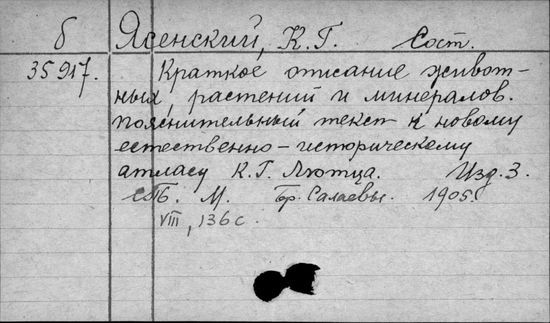 б Ясенский, К. Г. Сост.
35917. Краткое описание живот-
ных, растений и минералов.
Пояснительный текст к новому
естественно-историческому
атласу К. Г. Лютца. Изд. 3.
СПб. М. Бр. Салаевы. 1905.
VIII, 136 с.